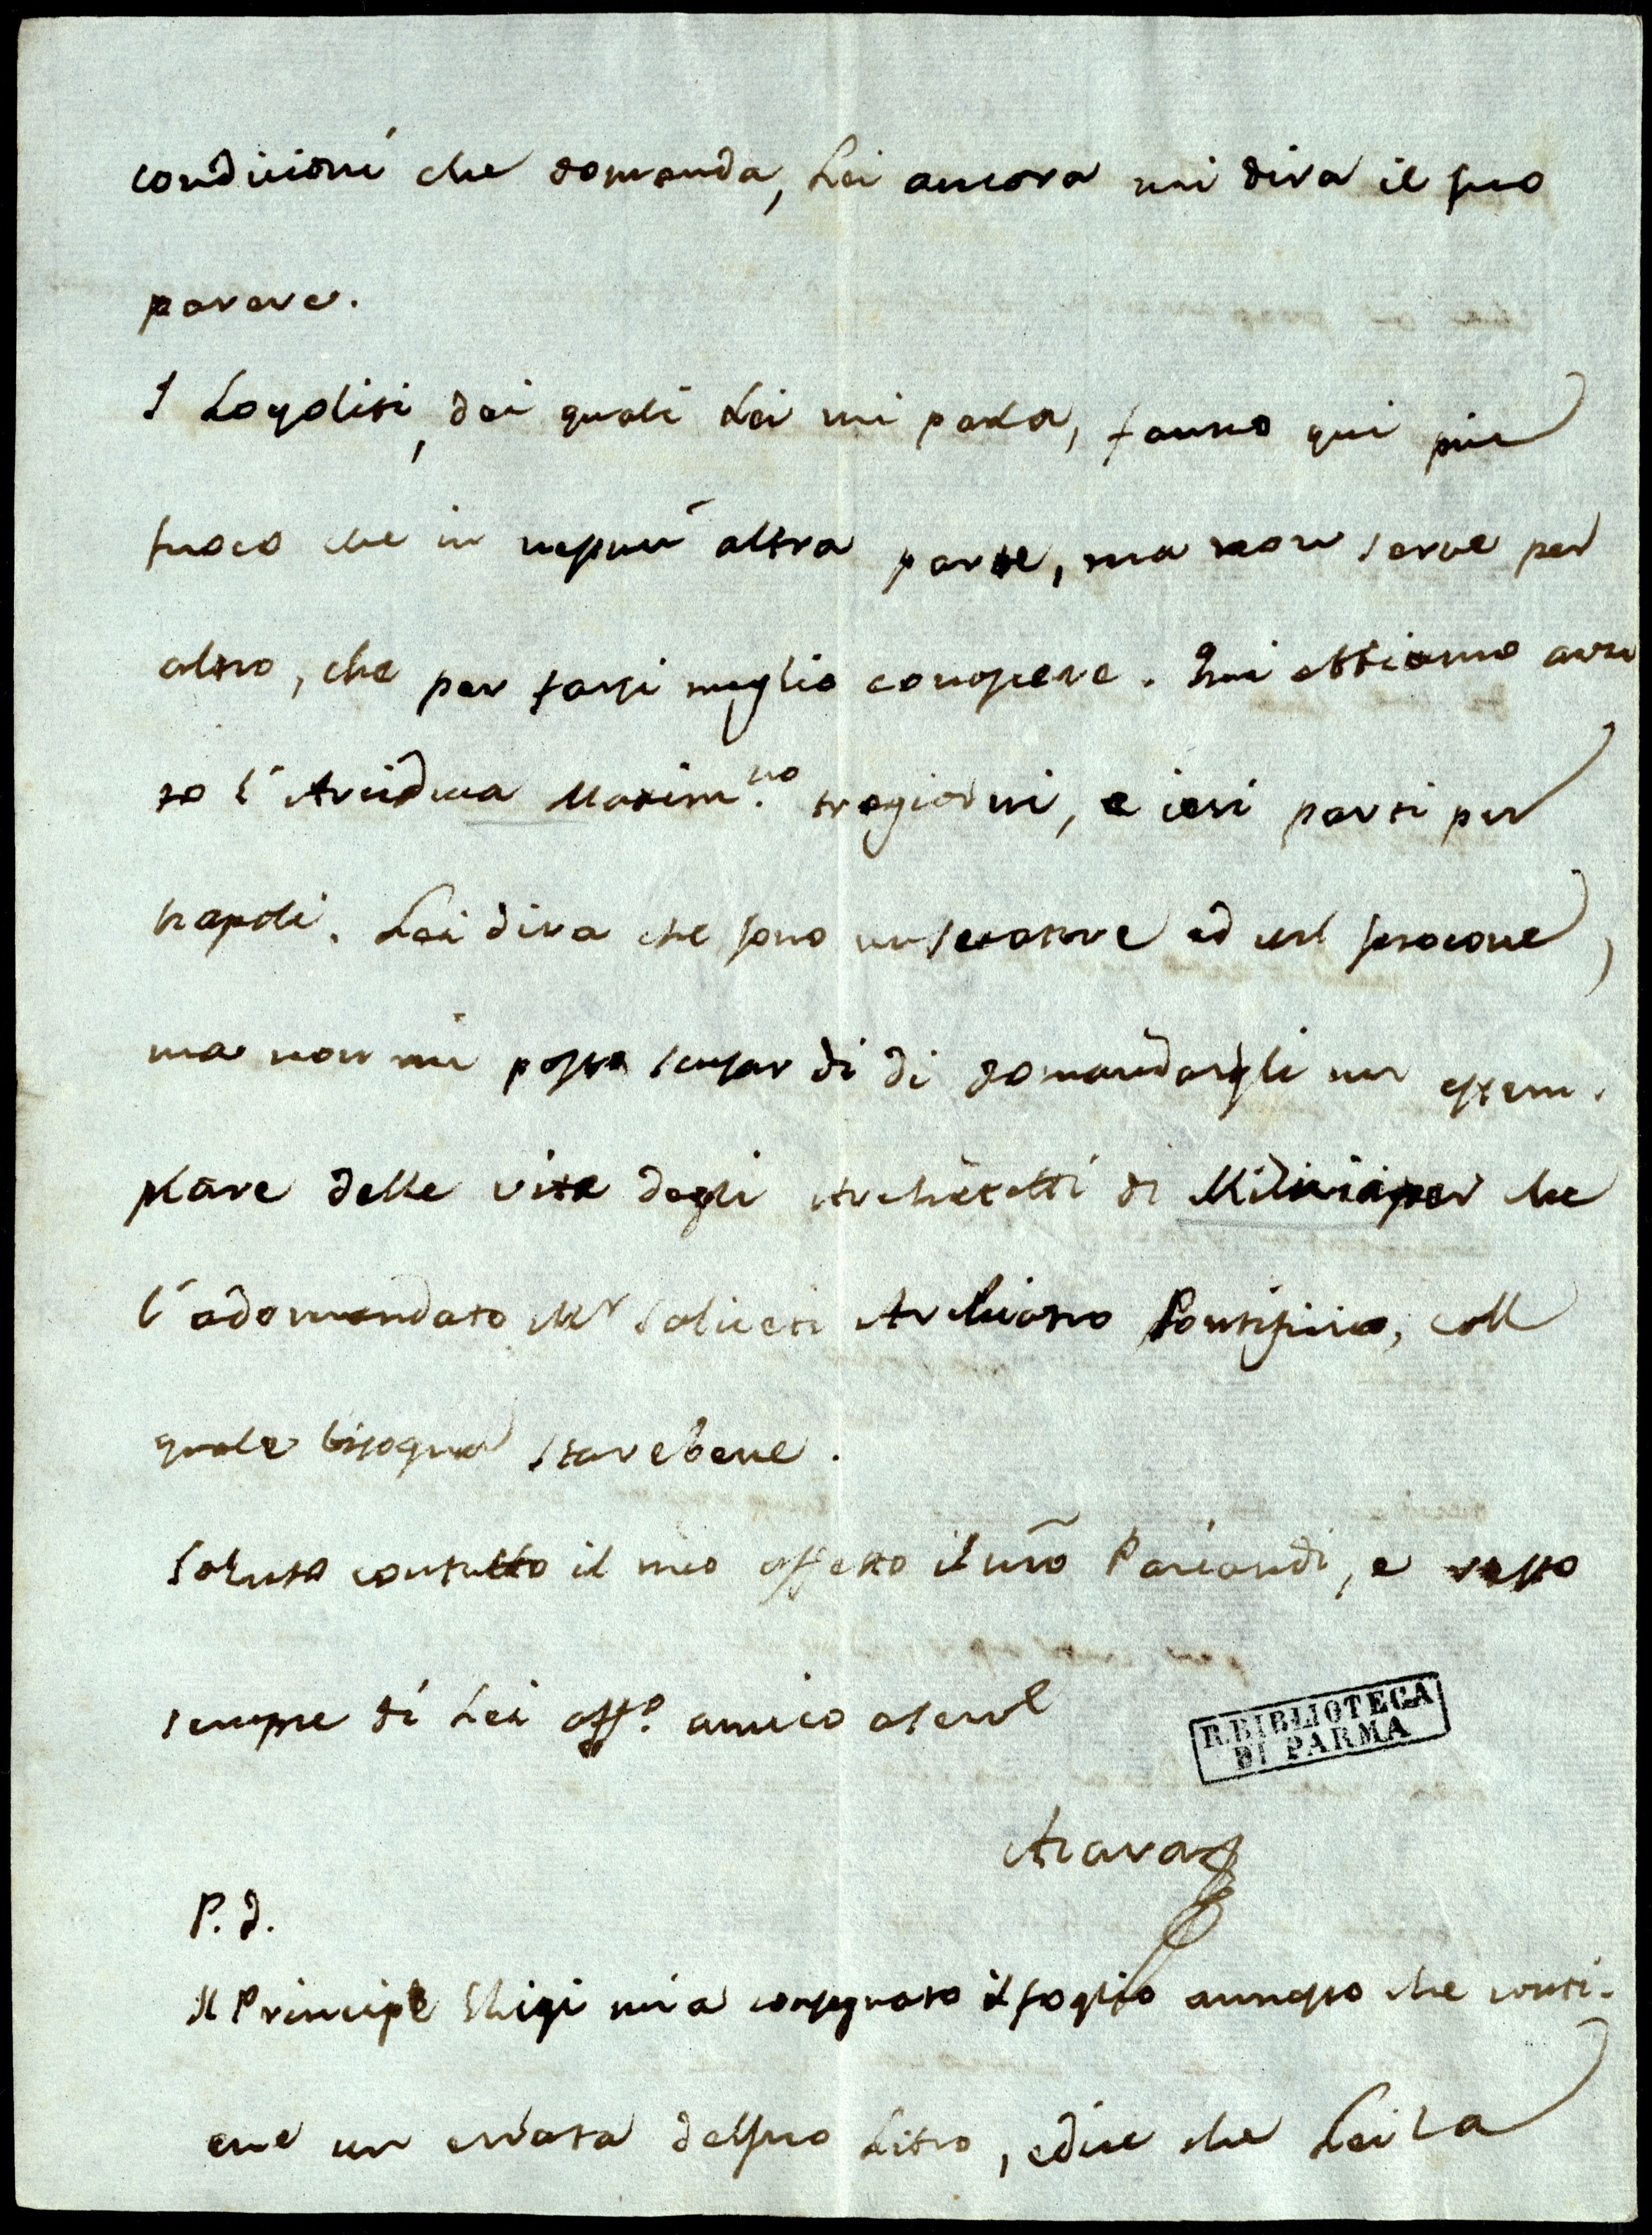 condicioni che domanda, Lei ancora mi dira il suo
parere.
I Loyoliti, dei quali Lei mi parla, fanno qui piu
fuoco che in nepiu altra parte, ma non serve per
altro, che per farsi meglio conoscere. Qui abbiamo avu
to l'Arciduca Maxim.no tregiorni, e ieri parti per
Napoli. Lei dira che sono un secatore ed un
ma non mi posso scusar di di domandargli un essem.
plare delle vite degli Architetti di Milizia per che
l'adomandato Mr Saliceti Archiatro Pontificio, coll
quale bisogna starebene.
Saluto contutto il mio affetto il nro Paciaudi, e resto
sempre di Lei affo. amico
R. BIBLIOTECA
DI PARMA
Azara
P. S.
Il Principe Chigi mia consegnato il foglio annesso che conti-
ene un errata delsuo Libro, edice che Lei la